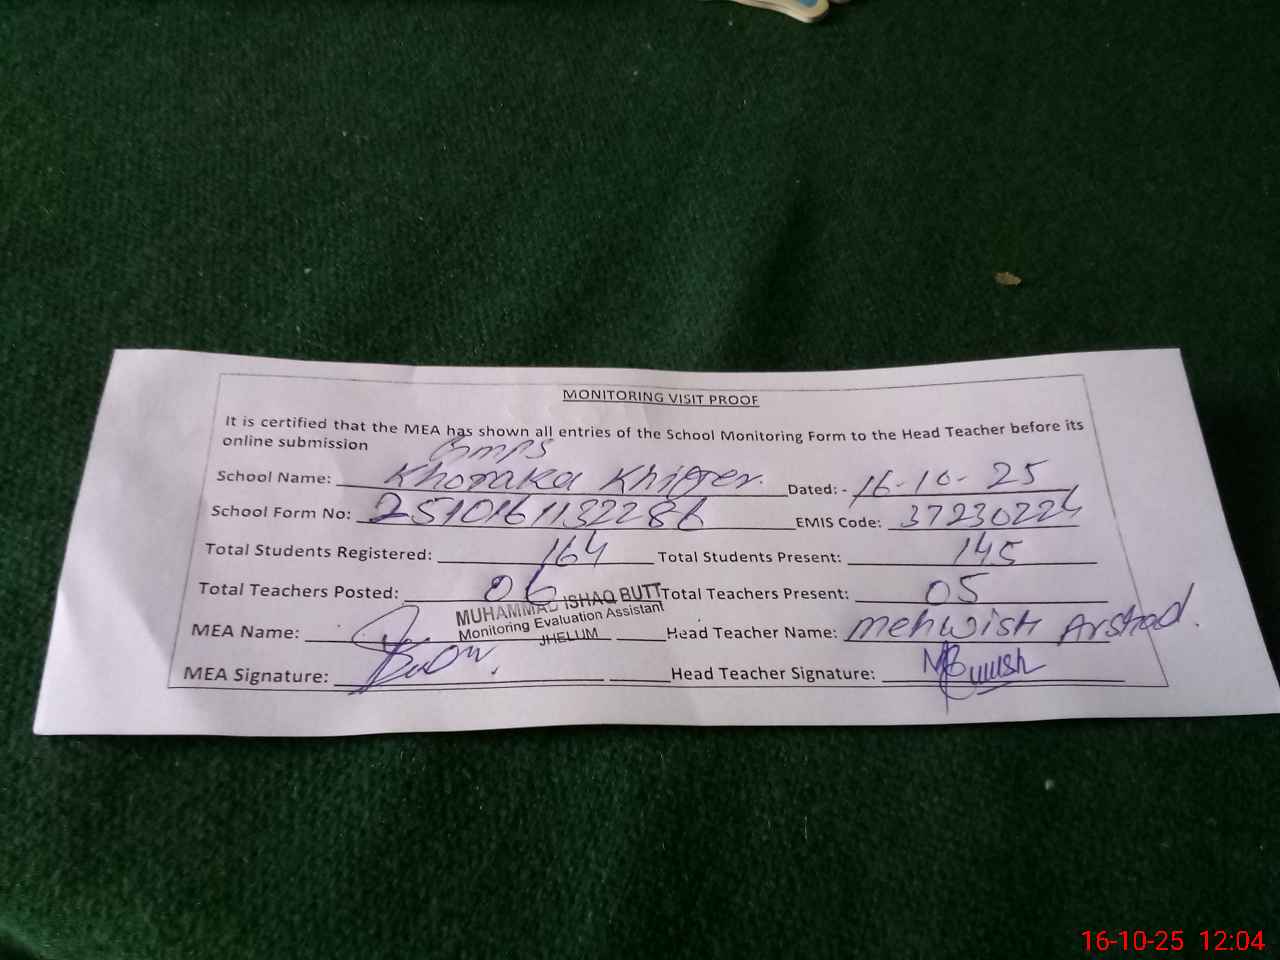 MONITORING VISIT PROOF
It is certified that the MEA has shown all entries of the School Monitoring Form to the Head Teacher before its
online submission
School Name: Khoraka Dated:- 16-10-25
School Form No: 2510161132286 EMIS Code: 37230224
Total Students Registered: 164 Total Students Present: 145
Total Teachers Posted: 06 Total Teachers Present: 05
MUHAMMAD ISHAQ BUTT
Monitoring Evaluation Assistant
JHELUM
MEA Name: Head Teacher Name: Mehwish Arshad.
MEA Signature: Head Teacher Signature:
16-10-25 12:04